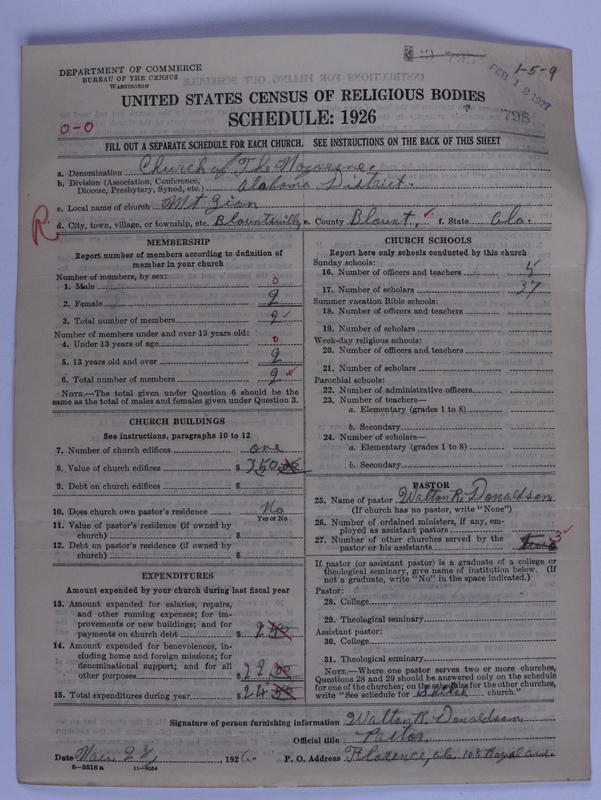 DEPARTMENT OF COMMERCE
BUREAU OF THE CENSUS
WASHINGTON
1-5-9
FEB 12 1927
798
UNITED STATES CENSUS OF RELIGIOUS BODIES
SCHEDULE: 1926
0-0
FILL OUT A SEPARATE SCHEDULE FOR EACH CHURCH. SEE INSTRUCTIONS ON THE BACK OF THIS SHEET
a. Denomination Church of The Nazarene.
b. Division (Association, Conference, Diocese, Presbytery, Synod, etc.) Alabama District.
c. Local name of church Mt Zion
R
d. City, town, village, or township, etc. Blountsville e. County Blount, f. State Ala.
MEMBERSHIP
Report number of members according to definition of
member in your church
Number of members, by sex:
1. Male 0
2. Female 2
3. Total number of members 2
Number of members under and over 13 years old:
4. Under 13 years of age 0
5. 13 years old and over 2
6. Total number of members 2
NOTE.—The total given under Question 6 should be
same as the total of males and females given under Question 3.
CHURCH BUILDINGS
See instructions, paragraphs 10 to 12
7. Number of church edifices one
8. Value of church edifices $ 350 00
9. Debt on church edifices $
10. Does church own pastor's residence No
Yes or No
11. Value of pastor's residence (if owned by
church) $
12. Debt on pastor's residence (if owned by
church) $
EXPENDITURES
Amount expended by your church during last fiscal year
13. Amount expended for salaries, repairs,
and other running expenses; for im-
provements or new buildings; and for
payments on church debt $ 2 00
14. Amount expended for benevolences, in-
cluding home and foreign missions; for
denominational support; and for all
other purposes $ 22,00
15. Total expenditures during year $ 24 00
CHURCH SCHOOLS
Report here only schools conducted by this church
Sunday schools:
16. Number of officers and teachers 5
17. Number of scholars 37
Summer vacation Bible schools:
18. Number of officers and teachers
19. Number of scholars
Week-day religious schools:
20. Number of officers and teachers
21. Number of scholars
Parochial schools:
22. Number of administrative officers
23. Number of teachers—
a. Elementary (grades 1 to 8)
b. Secondary
24. Number of scholars—
a. Elementary (grades 1 to 8)
b. Secondary
PASTOR
25. Name of pastor Walton R. Donaldson
(If church has no pastor, write "None")
26. Number of ordained ministers, if any, em-
ployed as assistant pastors
27. Number of other churches served by the
pastor or his assistants 3
If pastor (or assistant pastor) is a graduate of a college or
theological seminary, give name of institution below. (If
not a graduate, write "No" in the space indicated.)
Pastor:
28. College
29. Theological seminary
Assistant pastor:
30. College
31. Theological seminary
NOTE.—Where one pastor serves two or more churches,
Questions 28 and 29 should be answered only on the schedule
for one of the churches; on the schedules for the other churches,
write "See schedule for church."
Signature of person furnishing information Walton R. Donaldson
Official title Pastor.
Date 1926 P. O. Address Florence, Ala. 108 Royal ave.
8—5518 a 11—9054